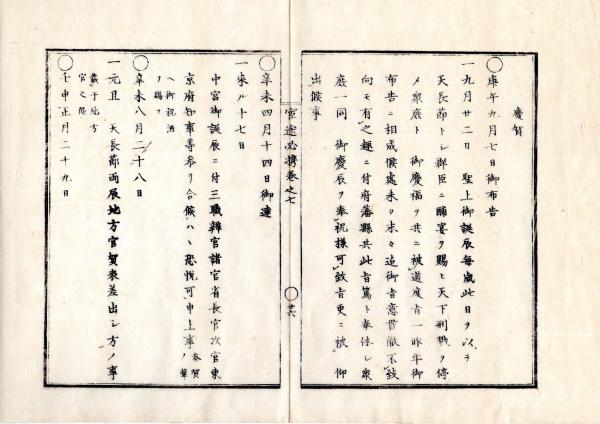 慶賀
庚午九月七日御布告
一九月廿二日 聖上御誕辰毎歳此日ヲ以テ
天長節トシ群臣ニ酺宴ヲ賜ヒ天下刑戮ヲ停
メ衆庶ト 御慶福ヲ共ニ被遊度旨一昨年御
布告ニ相成候處未タ末々迄御旨意貫徹不致
向モ有之趣ニ付府藩縣共此旨篤ト奉体シ衆
庶一同 御慶辰ヲ奉祝様可致旨更ニ被 仰
出候事
官途必携巻之七
廿六
辛未四月十四日御達
一来ル十七日
中宮御誕辰ニ付三職辨官諸官省長官次官東
京府知事等参リ合候ハヽ恐悦可申上事
参賀ノ輩
ヘ御祝酒
ヲ賜フ
辛未八月二十八日
一元旦 天長節両辰地方官賀表差出シ方ノ事
載于地方
官之條
壬申正月二十九日